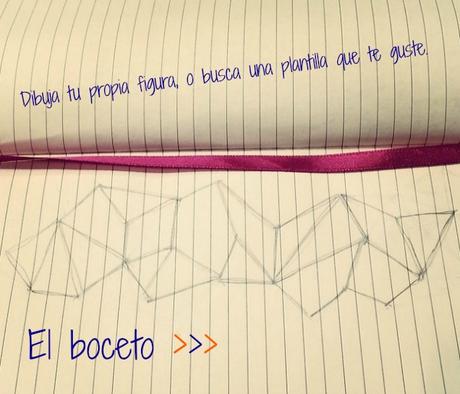 Dibuja tu propia figura, o busca una plantilla que te guste.
El boceto >>>